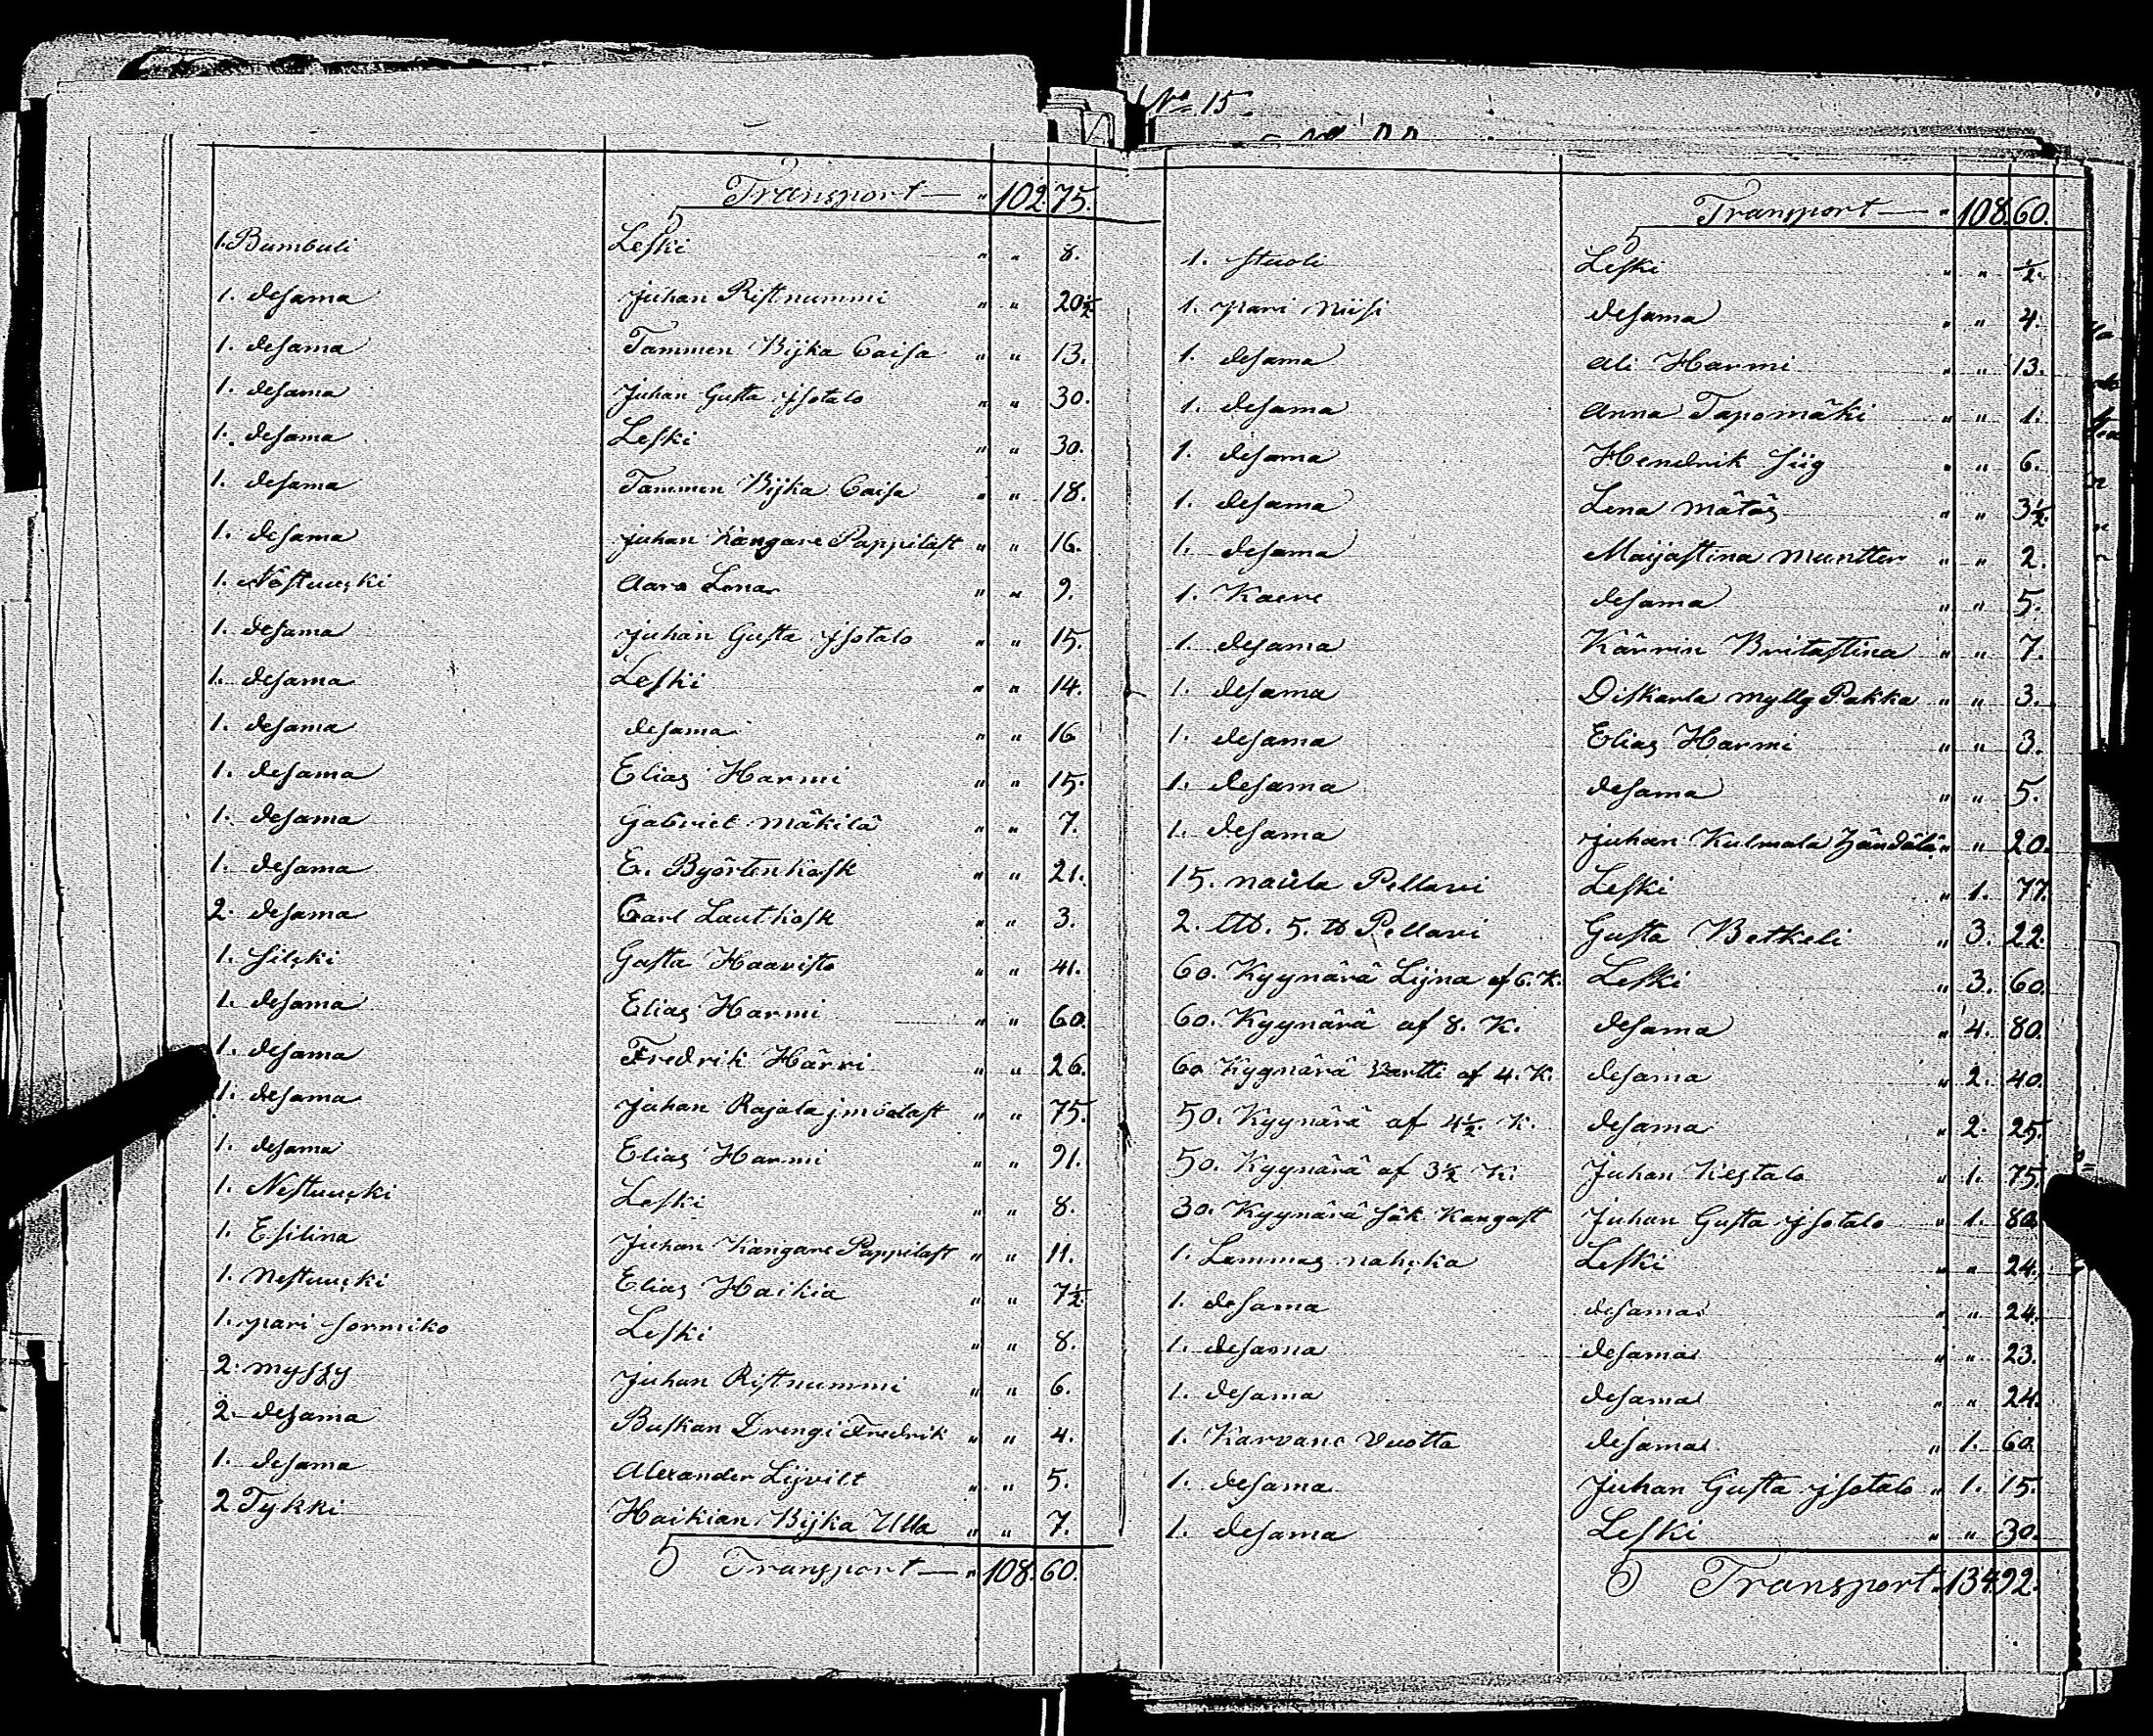 No 15.
Transport — " 102. 75.
1. Bumbuli Leski " " 8.
1. desama Juhan Ristnummi " " 20½
1. desama Tammen Bijka Caisa " " 13.
1. desama Juhan Gusta jsotalo " " 30.
1. desama Leski " " 30.
1. desama Tammen Bijka Caisa " " 18.
1. desama Juhan Kangare Pappilast " " 16.
1. Nöstuuski Aara Lena " " 9.
1. desama Juhan Gusta jsotalo " " 15.
1. desama Leski " " 14.
1. desama desama " " 16
1. desama Elias Harmi " " 15.
1. desama Gabriel mäkilä " " 7.
1. desama E. Byörtenkosk " " 21.
2. desama Carl Lautkosk " " 3.
1. Silski Gusta Haavisto " " 41.
1. desama Elias Harmi " " 60.
1. desama Fredrik Härri " " 26.
1. desama Juhan Rajala jmoalast " " 75.
1. desama Elias Harmi " " 91.
1. Nestuuski Leski " " 8.
1. Esilina Juhan Kangare Pappilast " " 11.
1. Nestuuski Elias Haikia " " 7½
1. pari sormiko Leski " " 8.
2. myssy Juhan Ristnummi " " 6.
2. desama Buskan Drengi Fredrik " " 4.
1. desama Alexander Lijvilt " " 5.
2 Tykki Haikian Bijka Ulla " " 7.
Transport — " 108. 60.
Transport — " 108. 60.
1. stuoli Leski " " ½.
1. pari niisi desama " " 4.
1. desama Ali Harmi " " 13.
1. desama Anna Tapomäki " " 1.
1. desama Hendrik Siig " " 6.
1. desama Lena mätäs " " 3½.
1. desama Maijastina Muntter " " 2.
1. Kaere desama " " 5.
1. desama Kärrin Britastina " " 7.
1. desama Diskarla myllg Pakka " " 3.
1. desama Elias Harmi " " 3.
1. desama desama " " 5.
1. desama Juhan Kulmala " " 20.
15. naula Pellavi Leski " 1. 77.
2. Ltb. 5. tb Pellavi Gusta Betkeli " 3. 22.
60. Kyynärä Lijna af 6. K. Leski " 3. 60.
60. Kyynärä af 8. K. desama " 4. 80.
60 Kyynärä Vartti af 4. K. desama " 2. 40.
50. Kyynärä af 4½. K. desama " 2. 25.
50. Kyynärä af 3½ K. Juhan Kestalo " 1. 75.
30. Kyynärä Säk Kangast Juhan Gusta jsotalo " 1. 80.
1. Lammas nahka Leski " " 24.
1. desama desama " " 24.
1. desama desama " " 23.
1. desama desama " " 24.
1. Karvane Vuotta desama " 1. 60
1. desama Juhan Gusta jsotalo " 1. 15.
1. desama Leski " " 30.
Transport " 134. 92.